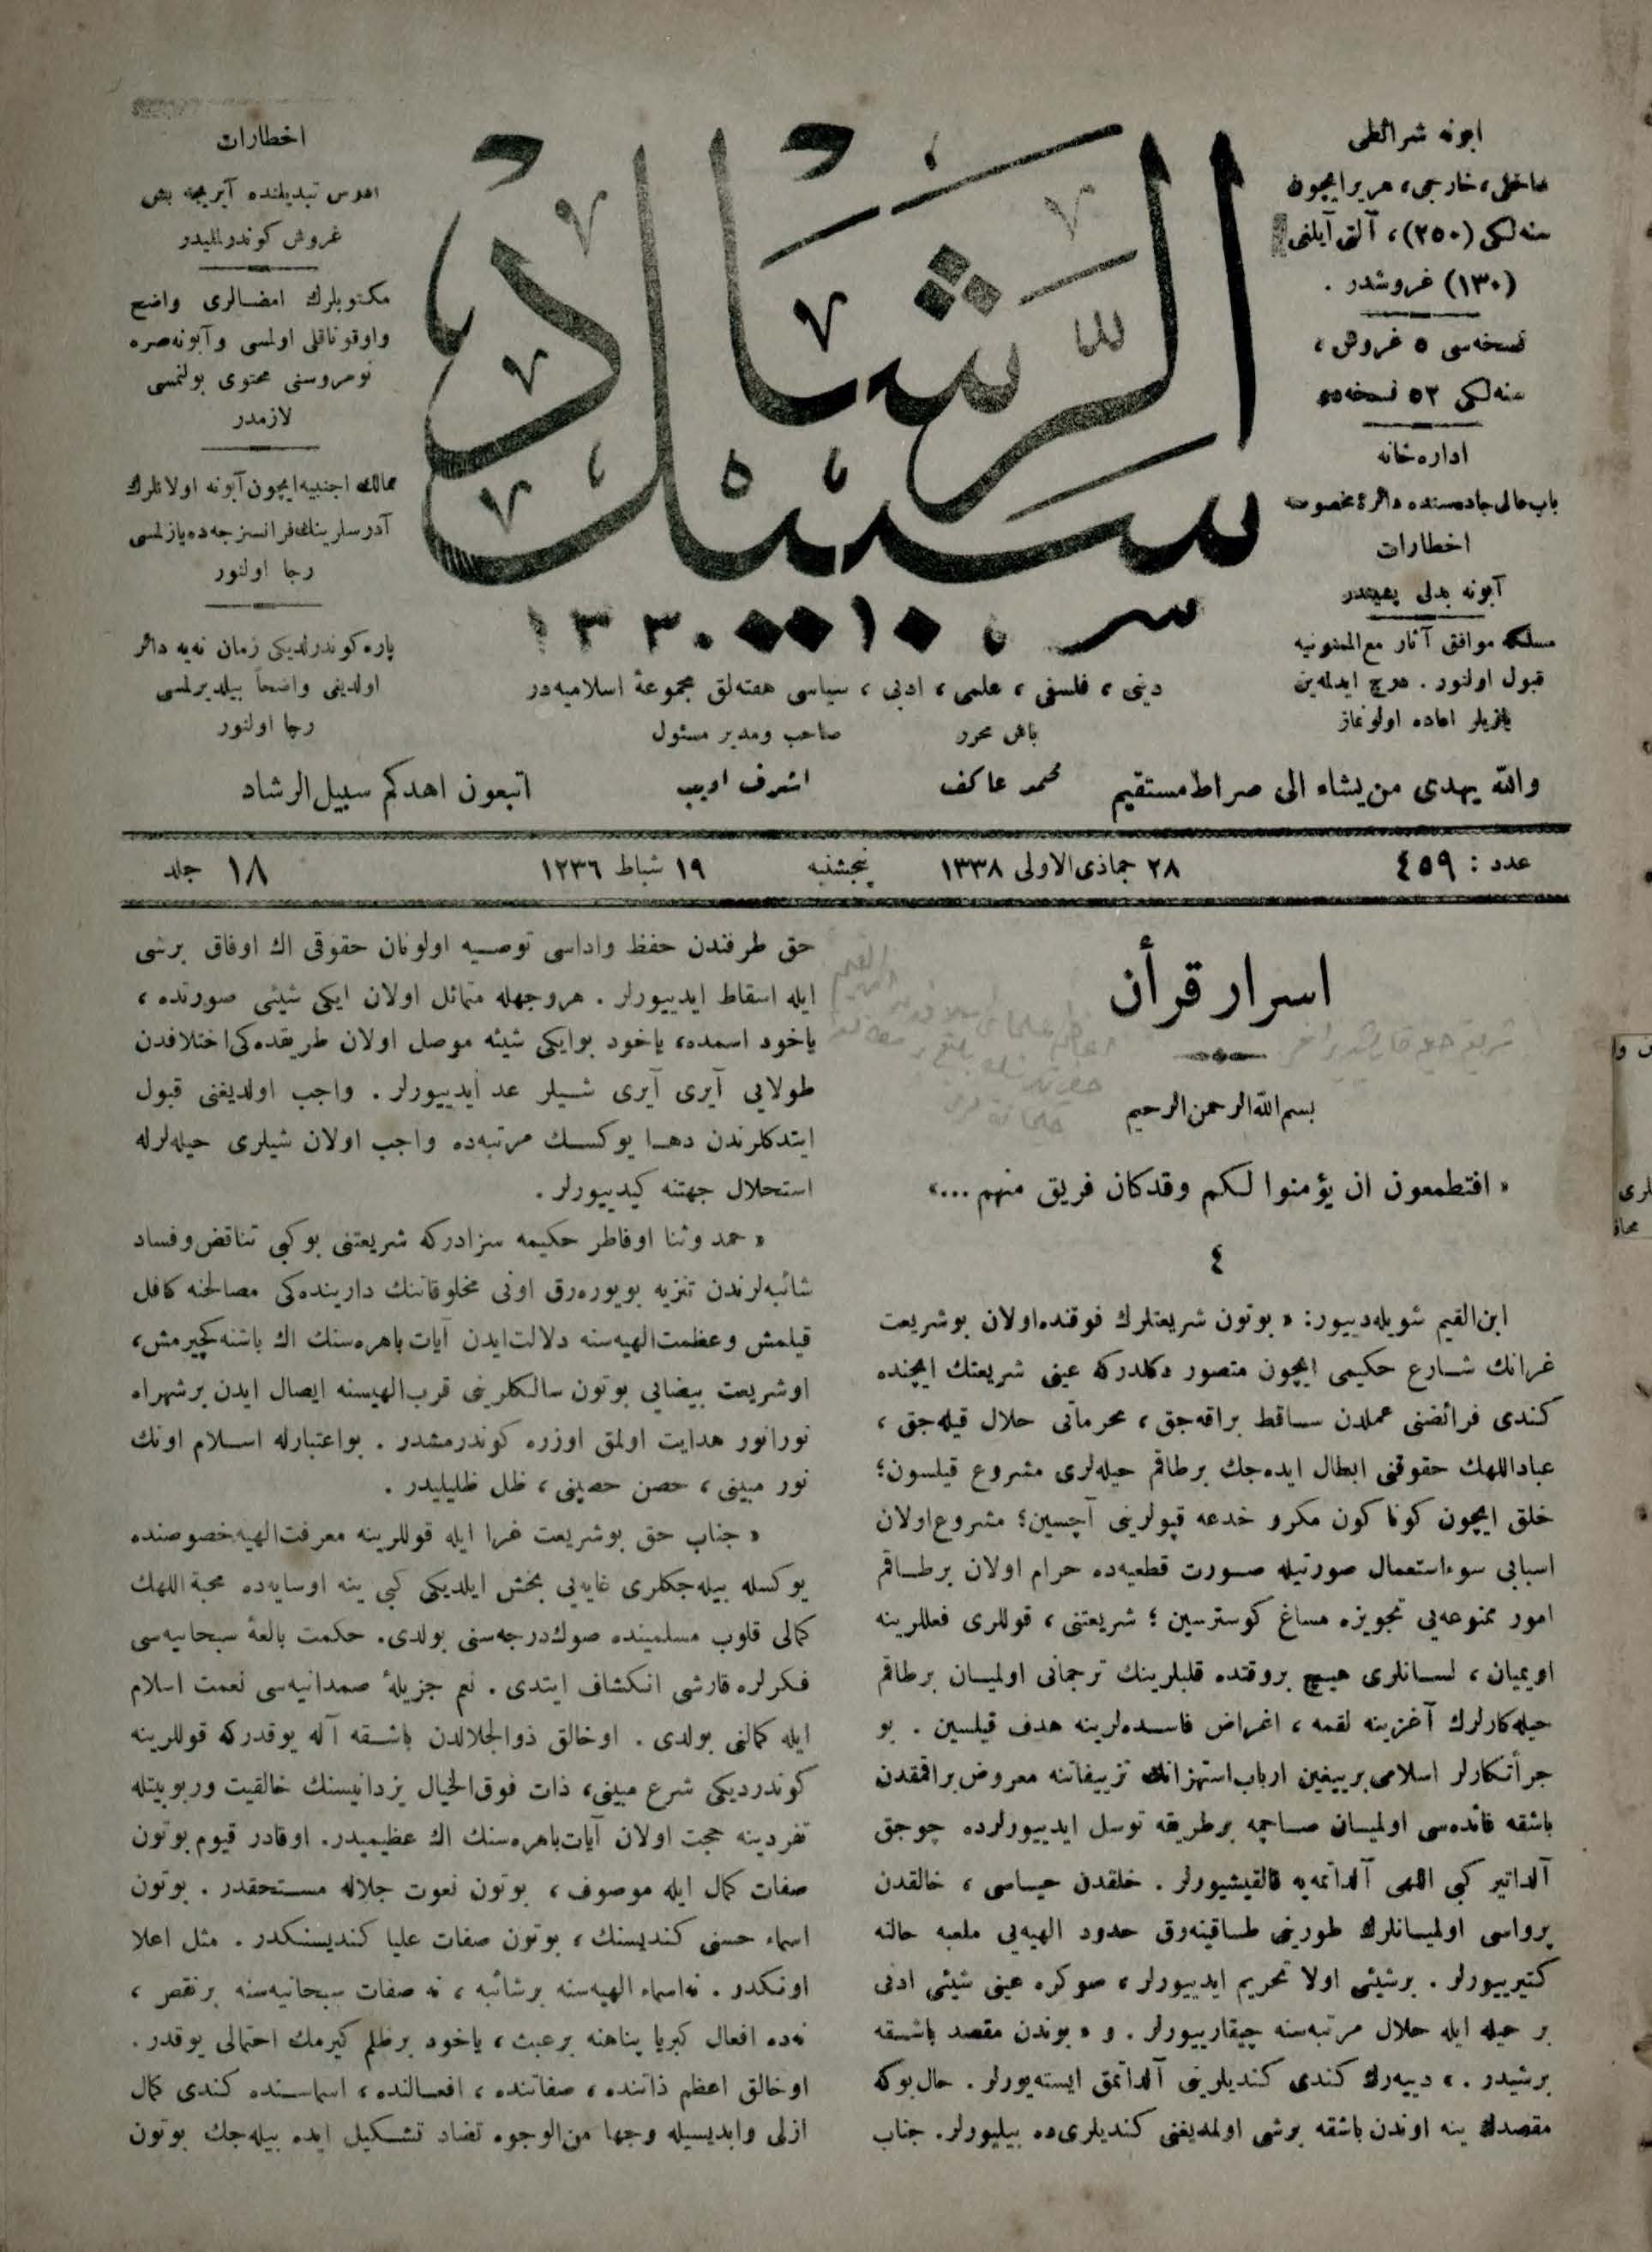 ابونه شرائطی
داخلی، خارجی، هر یر ایچون
سنه‌لکی (٢٥٠)، آلتی آیلغی
(١٣٠) غروشدر .
نسخه‌سی ٥ غروش،
سنه‌لکی ٥٢ نسخه‌در
اداره‌خانه
باب عالی جاده‌سنده دائرهٔ مخصوصه
اخطارات
آبونه بدلی پشیندر
مسلکه موافق آثار مع‌الممنونیه
قبول اولنور . درج ایدلمه‌ین
یازیلر اعاده اولونماز
سبیل الرشاد
١٣٣٠
دینی ، فلسفی ، علمی ، ادبی ، سیاسی هفته‌لق مجموعهٔ اسلامیه‌در
باش محرر
صاحب ومدیر مسئول
محمد عاکف
اشرف ادیب
اخطارات
آدرس تبدیلنده آیریجه بش
غروش کوندرلملیدر
مکتوبلرك امضالری واضح
واوقوناقلی اولمسی وآبونه‌صره
نومروسنی محتوی بولنمسی
لازمدر
ممالك اجنبیه ایچون آبونه اولانلرك
آدرسلرینك فرانسزجه‌ده یازلمسی
رجا اولنور
پاره کوندرلدیکی زمان نه‌یه دائر
اولدیغی واضحاً بیلدیرلمسی
رجا اولنور
والله یهدی من یشاء الی صراط مستقیم
اتبعون اهدکم سبیل الرشاد
عدد : ٤٥٩
٢٨ جماذی الاولی ١٣٣٨
پنجشنبه
١٩ شباط ١٣٣٦
١٨ جلد
اسرار قرأن
بسم الله الرحمن الرحیم
« افتطمعون ان یؤمنوا لکم وقدکان فریق منهم ...»
٤
ابن القیم شویله دییور: « بوتون شریعتلرك فوقنده اولان بو شریعت
غرانك شارع حکیمی ایچون متصور دکلدرکه عینی شریعتك ایچنده
کندی فرائضنی عملدن ساقط براقه‌جق ، محرماتی حلال قیله‌جق ،
عباداللهك حقوقنی ابطال ایده‌جك برطاقم حیله‌لری مشروع قیلسون؛
خلق ایچون کوناکون مکر و خدعه قپولرینی آچسین؛ مشروع اولان
اسبابی سوءاستعمال صورتیله صورت قطعیه‌ده حرام اولان برطاقم
امور ممنوعه‌یی تجویزه مساغ کوسترسین ؛ شریعتنی ، قوللری فعللرینه
اویمیان ، لسانلری هیچ بروقتده قلبلرینك ترجمانی اولمیان برطاقم
حیله‌کارلرك آغزینه لقمه ، اغراض فاسده‌لرینه هدف قیلسین . بو
جرأتکارلر اسلامی بریغین ارباب استهزانك تزییفاتنه معروض براقمقدن
باشقه فائده‌سی اولمیان صاچمه برطریقه توسل ایدییورلرده چوجق
آلداتیر کبی اللهی آلداتمه‌یه قالقیشیورلر . خلقدن حیاسی ، خالقدن
پرواسی اولمیانلرك طورینی طاقینه‌رق حدود الهیه‌یی ملعبه حالنه
کتیرییورلر . برشیئی اولا تحریم ایدییورلر ، صوکره عینی شیئی ادنی
بر حیله ایله حلال مرتبه‌سنه چیقارییورلر . و « بوندن مقصد باشقه
برشیدر . » دییه‌رك کندی کندیلرینی آلداتمق ایسته‌یورلر . حال بوکه
مقصدك ینه اوندن باشقه برشی اولمدیغنی کندیلری‌ده بیلیورلر. جناب
حق طرفندن حفظ واداسی توصیه اولونان حقوقی اك اوفاق برشی
ایله اسقاط ایدییورلر . هروجهله متماثل اولان ایکی شیئی صورتده ،
یاخود اسمده، یاخود بوایکی شیئه موصل اولان طریقده‌کی اختلافدن
طولایی آیری آیری شیلر عد ایدییورلر . واجب اولدیغنی قبول
ایتدکلرندن دها یوکسك مرتبه‌ده واجب اولان شیلری حیله‌لرله
استحلال جهتنه کیدییورلر .
« حمد وثنا اوفاطر حکیمه سزادرکه شریعتنی بوکبی تناقض وفساد
شائبه‌لرندن تنزیه بویوره‌رق اونی مخلوقاتنك دارینده‌کی مصالحنه کافل
قیلمش وعظمت الهیه‌سنه دلالت ایدن آیات باهره‌سنك اك باشنه کچیرمش،
اوشریعت بیضایی بوتون سالکلرینی قرب الهیسنه ایصال ایدن برشهراه
نورانور هدایت اولمق اوزره کوندرمشدر . بواعتبارله اسلام اونك
نور مبینی ، حصن حصینی ، ظل ظلیلیدر .
« جناب حق بوشریعت غرا ایله قوللرینه معرفت الهیه خصوصنده
یوکسله بیله‌جکلری غایه‌یی بخش ایلدیکی کبی ینه اوسایه‌ده محبة اللهك
کمالی قلوب مسلمینده صوك درجه‌سنی بولدی. حکمت بالغهٔ سبحانیه‌سی
فکرلره قارشی انکشاف ایتدی . نعم جزیلهٔ صمدانیه‌سی نعمت اسلام
ایله کمالنی بولدی . اوخالق ذوالجلالدن باشقه آله یوقدرکه قوللرینه
کوندردیکی شرع مبینی، ذات فوق الخیال یزدانیسنك خالقیت وربوبیتله
تفردینه حجت اولان آیات باهره‌سنك اك عظیمیدر. اوقادر قیوم بوتون
صفات کمال ایله موصوف ، بوتون نعوت جلاله مستحقدر . بوتون
اسماء حسنی کندیسنك ، بوتون صفات علیا کندیسنکدر . مثل اعلا
اونکدر . نه‌اسماء الهیه‌سنه برشائبه ، نه صفات سبحانیه‌سنه برنقص ،
نه‌ده افعال کبریا پناهنه برعبث ، یاخود برظلم کیرمك احتمالی یوقدر .
اوخالق اعظم ذاتنده ، صفاتنده ، افعالنده ، اسماسنده کندی کمال
ازلی وابدیسیله وجها من الوجوه تضاد تشکیل ایده بیله‌جك بوتون